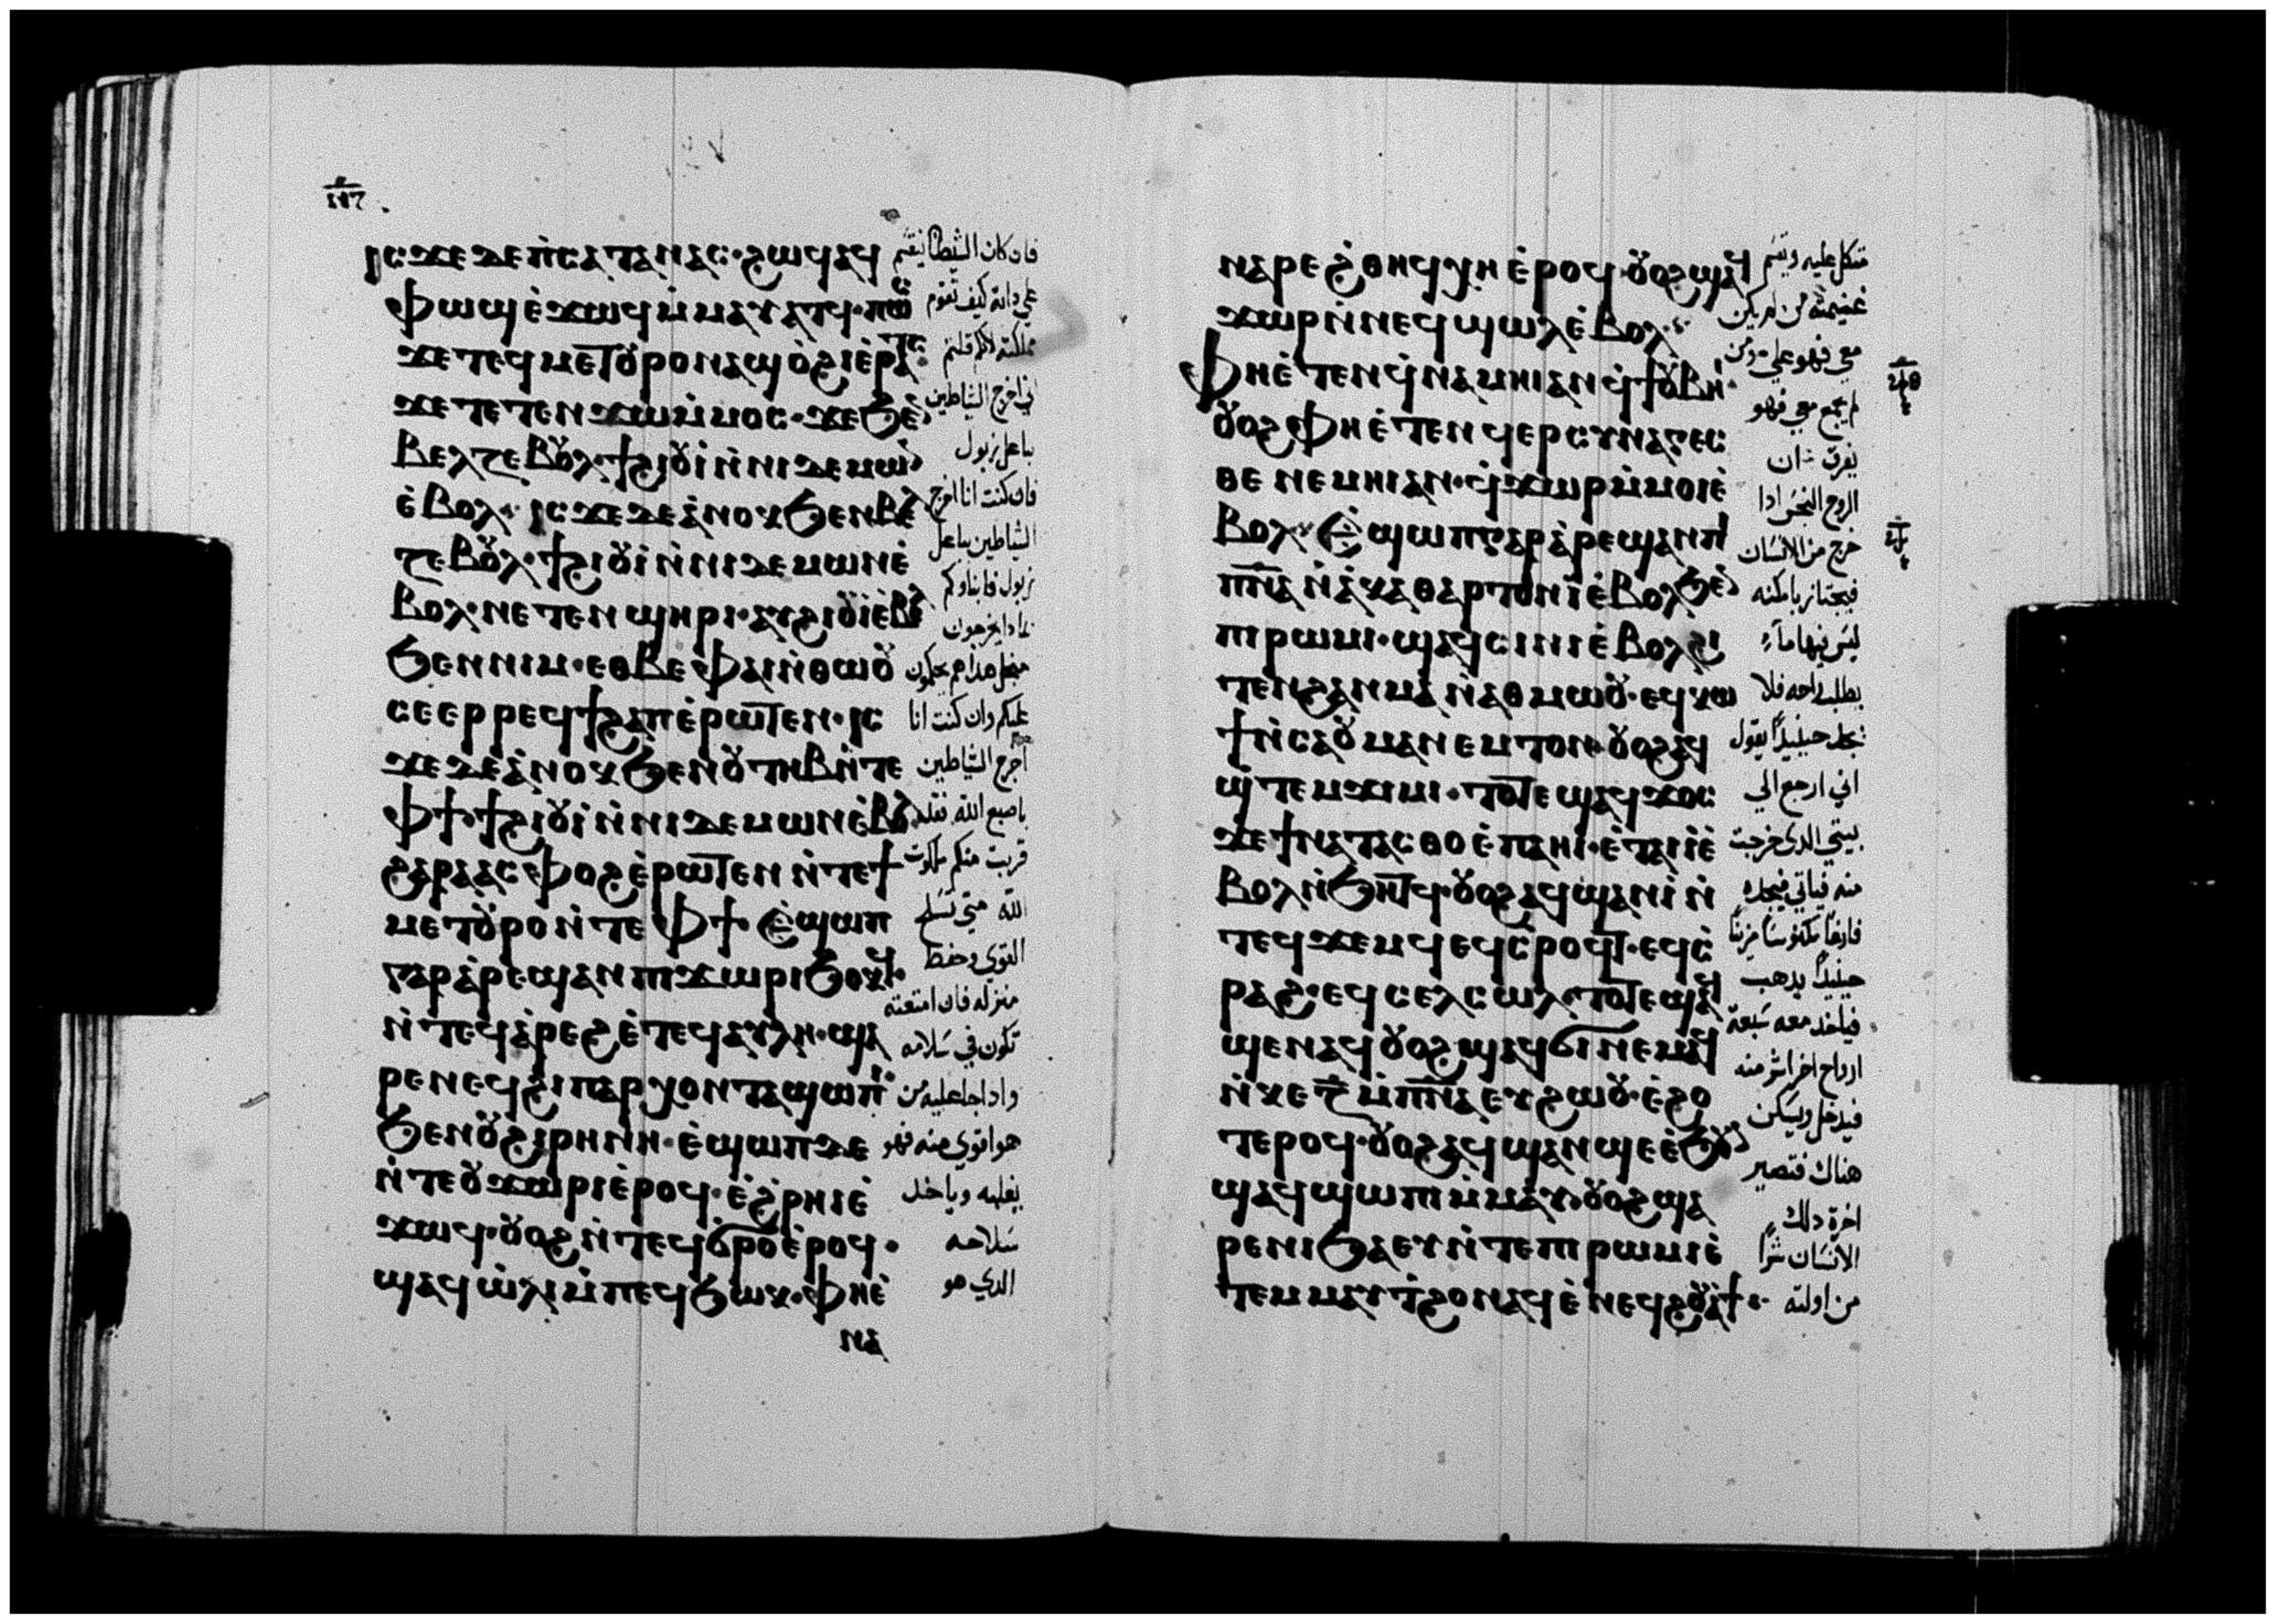 ⲓⲥϫⲉ ⲇⲉ ⲡ̀ⲥⲁⲧⲁⲛⲁⲥ· ϩⲱϥ ⲁϥ
ⲫⲱϣ ⲉ̀ϫⲱϥ ⲙ̀ⲙⲁⲩⲁⲧϥ· ⲡⲱⲥ
ϫⲉ ⲧⲉϥⲙⲉⲧⲟⲩⲣⲟ ⲛⲁϣ ⲟ̀ϩⲓ ⲉ̀ⲣⲁⲧⲥ·
ϫⲉ ⲧⲉⲧⲉⲛϫⲱ ⲙ̀ⲙⲟⲥ· ϫⲉ ϧⲉⲛ
ⲃⲉⲗⲍⲉⲃⲟⲩⲗ· ϯϩⲓⲟⲩⲓ̀ ⲛ̀ⲛⲓⲇⲉⲙⲱⲛ
ⲉ̀ⲃⲟⲗ· ⲓⲥϫⲉ ⲇⲉ ⲁ̀ⲛⲟⲕ ϧⲉⲛ ⲃⲉⲗ
ⲍⲉⲃⲟⲩⲗ· ϯϩⲓⲟⲩⲓ̀ ⲛ̀ⲛⲓⲇⲉⲙⲱⲛ ⲉ̀
ⲃⲟⲗ· ⲛⲉⲧⲉⲛϣⲏⲣⲓ· ⲁⲩϩⲓⲟⲩⲓ̀ ⲉ̀ⲃⲟⲗ
ϧⲉⲛ ⲛⲓⲙ· ⲉⲑⲃⲉ ⲫⲁⲓ ⲛ̀ⲑⲱⲟⲩ
ⲥⲉⲉⲣⲣⲉϥϯϩⲁⲡ ⲉ̀ⲣⲱⲧⲉⲛ· ⲓⲥ
ϫⲉ ⲇⲉ ⲁ̀ⲛⲟⲕ ϧⲉⲛ ⲟⲩⲧⲏⲃ ⲛ̀ⲧⲉ
ⲫϯ· ϯϩⲓⲟⲩⲓ̀ ⲛ̀ⲛⲓⲇⲉⲙⲱⲛ ⲉ̀ⲃⲟⲗ
ϩⲁⲣⲁ ⲁⲥⲫⲟϩ ⲉ̀ⲣⲱⲧⲉⲛ ⲛ̀ⲧⲉ ϯ
ⲙⲉⲧⲟⲩⲣⲟ ⲛ̀ⲧⲉ ⲫϯ· ⲉ̀ϣⲱⲡ
ⲅⲁⲣ ⲁ̀ⲣⲉϣⲁⲛ ⲡⲓϫⲱⲣⲓ ϧⲟⲕϥ·
ⲛ̀ⲧⲉϥⲁ̀ⲣⲉϩ ⲉ̀ⲧⲉϥⲁⲩⲗⲏ· ϣⲁ
ⲣⲉ ⲛⲉϥϩⲓⲡⲁⲣⲭⲟⲛⲧⲁ ϣⲱⲡⲓ
ϧⲉⲛ ⲟⲩϩⲓⲣⲏⲛⲏ· ⲉ̀ϣⲱⲡ ⲇⲉ
ⲛ̀ⲧⲉ ⲟⲩϫⲱⲣⲓ ⲉ̀ⲣⲟϥ· ⲉ̀ϩ̀ⲣⲏⲓ ⲉ̀
ϫⲱϥ· ⲟⲩⲟϩ ⲛ̀ⲧⲉϥϭⲣⲟ ⲉ̀ⲣⲟϥ·
ϣⲁϥⲱ̀ⲗⲓ ⲙ̀ⲡⲉϥϧⲱⲕ· ⲫⲏ ⲉ̀
ⲛⲁ
فان كان الشيطان انقسم
علي داته كيف تقوم
مملكته لانكم قلتم
اني اخرج الشياطين
بباعل زبول
فان كنت انا اخرج
الشياطين بباعل
زبول فابناوكم
بمادا يخرجون
من اجل هدا هم يحكمون
عليكم وان كنت انا
اخرج الشياطين
باصبع الله فقد
قربت منكم ملكوت
الله متي تسلح
القوي وحفظ
منزله فان امتعته
تكون في سلامه
وادا جا عليه من
هو اقوي منه فهو
يغلبه وياخد
سلاحه
الدي هو
ⲛⲁⲣⲉ ϩ̀ⲑⲏϥ ⲭⲏ ⲉ̀ⲣⲟϥ· ⲟⲩⲟϩ ϣⲁϥ
ϫⲱⲣ ⲛ̀ⲛⲉϥϣⲱⲗ ⲉ̀ⲃⲟⲗ·
ⲫⲏ ⲉ̀ⲧⲉⲛϥ̀ⲛⲉⲙⲏⲓ ⲁⲛ ϥ̀ϯ ⲟⲩⲃⲏⲓ·
ⲟⲩⲟϩ ⲫⲏ ⲉ̀ⲧⲉⲛϥⲉⲣⲥⲩⲛⲁⲅⲉⲥ
ⲑⲉ ⲛⲉⲙⲏⲓ ⲁⲛ· ϥ̀ϫⲱⲣ ⲙ̀ⲙⲟⲓ ⲉ̀
ⲃⲟⲗ· ⲉ̀ϣⲱⲡ ⲅⲁⲣ ⲁ̀ⲣⲉϣⲁⲛ ⲡⲓ
ⲡⲛⲁ ⲛ̀ⲁ̀ⲕⲁⲑⲁⲣⲧⲟⲛ ⲓ̀ ⲉ̀ⲃⲟⲗ ϧⲉⲛ
ⲡⲓⲣⲱⲙⲓ· ϣⲁϥⲥⲓⲛⲓ ⲉ̀ⲃⲟⲗ ϩⲓ
ⲧⲉⲛ ϩⲁⲛⲙⲁ ⲛ̀ⲁⲑⲙⲱⲟⲩ· ⲉϥⲕⲱ
ϯ ⲛ̀ⲥⲁ ⲟⲩⲙⲁⲛⲉⲙⲧⲟⲛ· ⲟⲩⲟϩ ⲁϥ
ϣ̀ⲧⲉⲙϫⲓⲙⲓ· ⲧⲟⲧⲉ ϣⲁϥϫⲟⲥ
ϫⲉ ϯⲛⲁⲧⲁⲥⲑⲟ ⲉ̀ⲡⲁⲏⲓ· ⲉ̀ⲧⲁⲓⲓ̀ ⲉ̀
ⲃⲟⲗ ⲛ̀ϧⲏⲧϥ· ⲟⲩⲟϩ ⲁϥϣⲁⲛⲓ̀ ⲛ̀
ⲧⲉϥϫⲉⲙϥ ⲉϥⲥ̀ⲣⲟϥⲧ· ⲉϥⲥ̀
ⲣⲁϩ· ⲉϥⲥⲉⲗⲥⲱⲗ· ⲧⲟⲧⲉ ϣⲁϥ
ϣⲉⲛⲁϥ ⲟⲩⲟϩ ϣⲁϥϭⲓ ⲛⲉⲙⲁϥ
ⲛ̀ⲕⲉ ⲍ̅ ⲙ̀ⲡⲛⲁ ⲉⲩϩⲱⲟⲩ· ⲉ̀ϩⲟ
ⲧⲉⲣⲟϥ· ⲟⲩⲟϩ ⲁϥϣⲁⲛϣⲉ ⲉ̀ϧⲟⲩⲛ
ϣⲁϥϣⲱⲡⲓ ⲙ̀ⲙⲁⲩ· ⲟⲩⲟϩ ϣⲁ
ⲣⲉ ⲛⲓϧⲁⲉⲩ ⲛ̀ⲧⲉ ⲡⲓⲣⲱⲙⲓ ⲉ̀
ⲧⲉⲙⲙⲁⲩ ⲧ̀ϩⲟ ⲛⲁϥ ⲉ̀ ⲛⲉϥϩⲟⲩⲁ̀ϯ·
متكل عليه ويقسم
غنيمته من لم يكن
معي فهو علي ومن
لم يجمع معي فهو
يفرق ان
الروح النجس ادا
خرج من الانسان
فيجتاز باماكنه
ليس فيها ماء
يطلب راحه فلا
يجد حينيدًا يقول
اني ارجع الي
بيتي الدي خرجت
منه فياتي فيجده
فارغًا مكنوسًا مزينًا
حينيدًا يدهب
فياخد معه سبعة
ارواح اخر اشر منه
فيدخل ويسكن
هناك فتصير
اخرة دلك
الانسان شرًا
من اولته